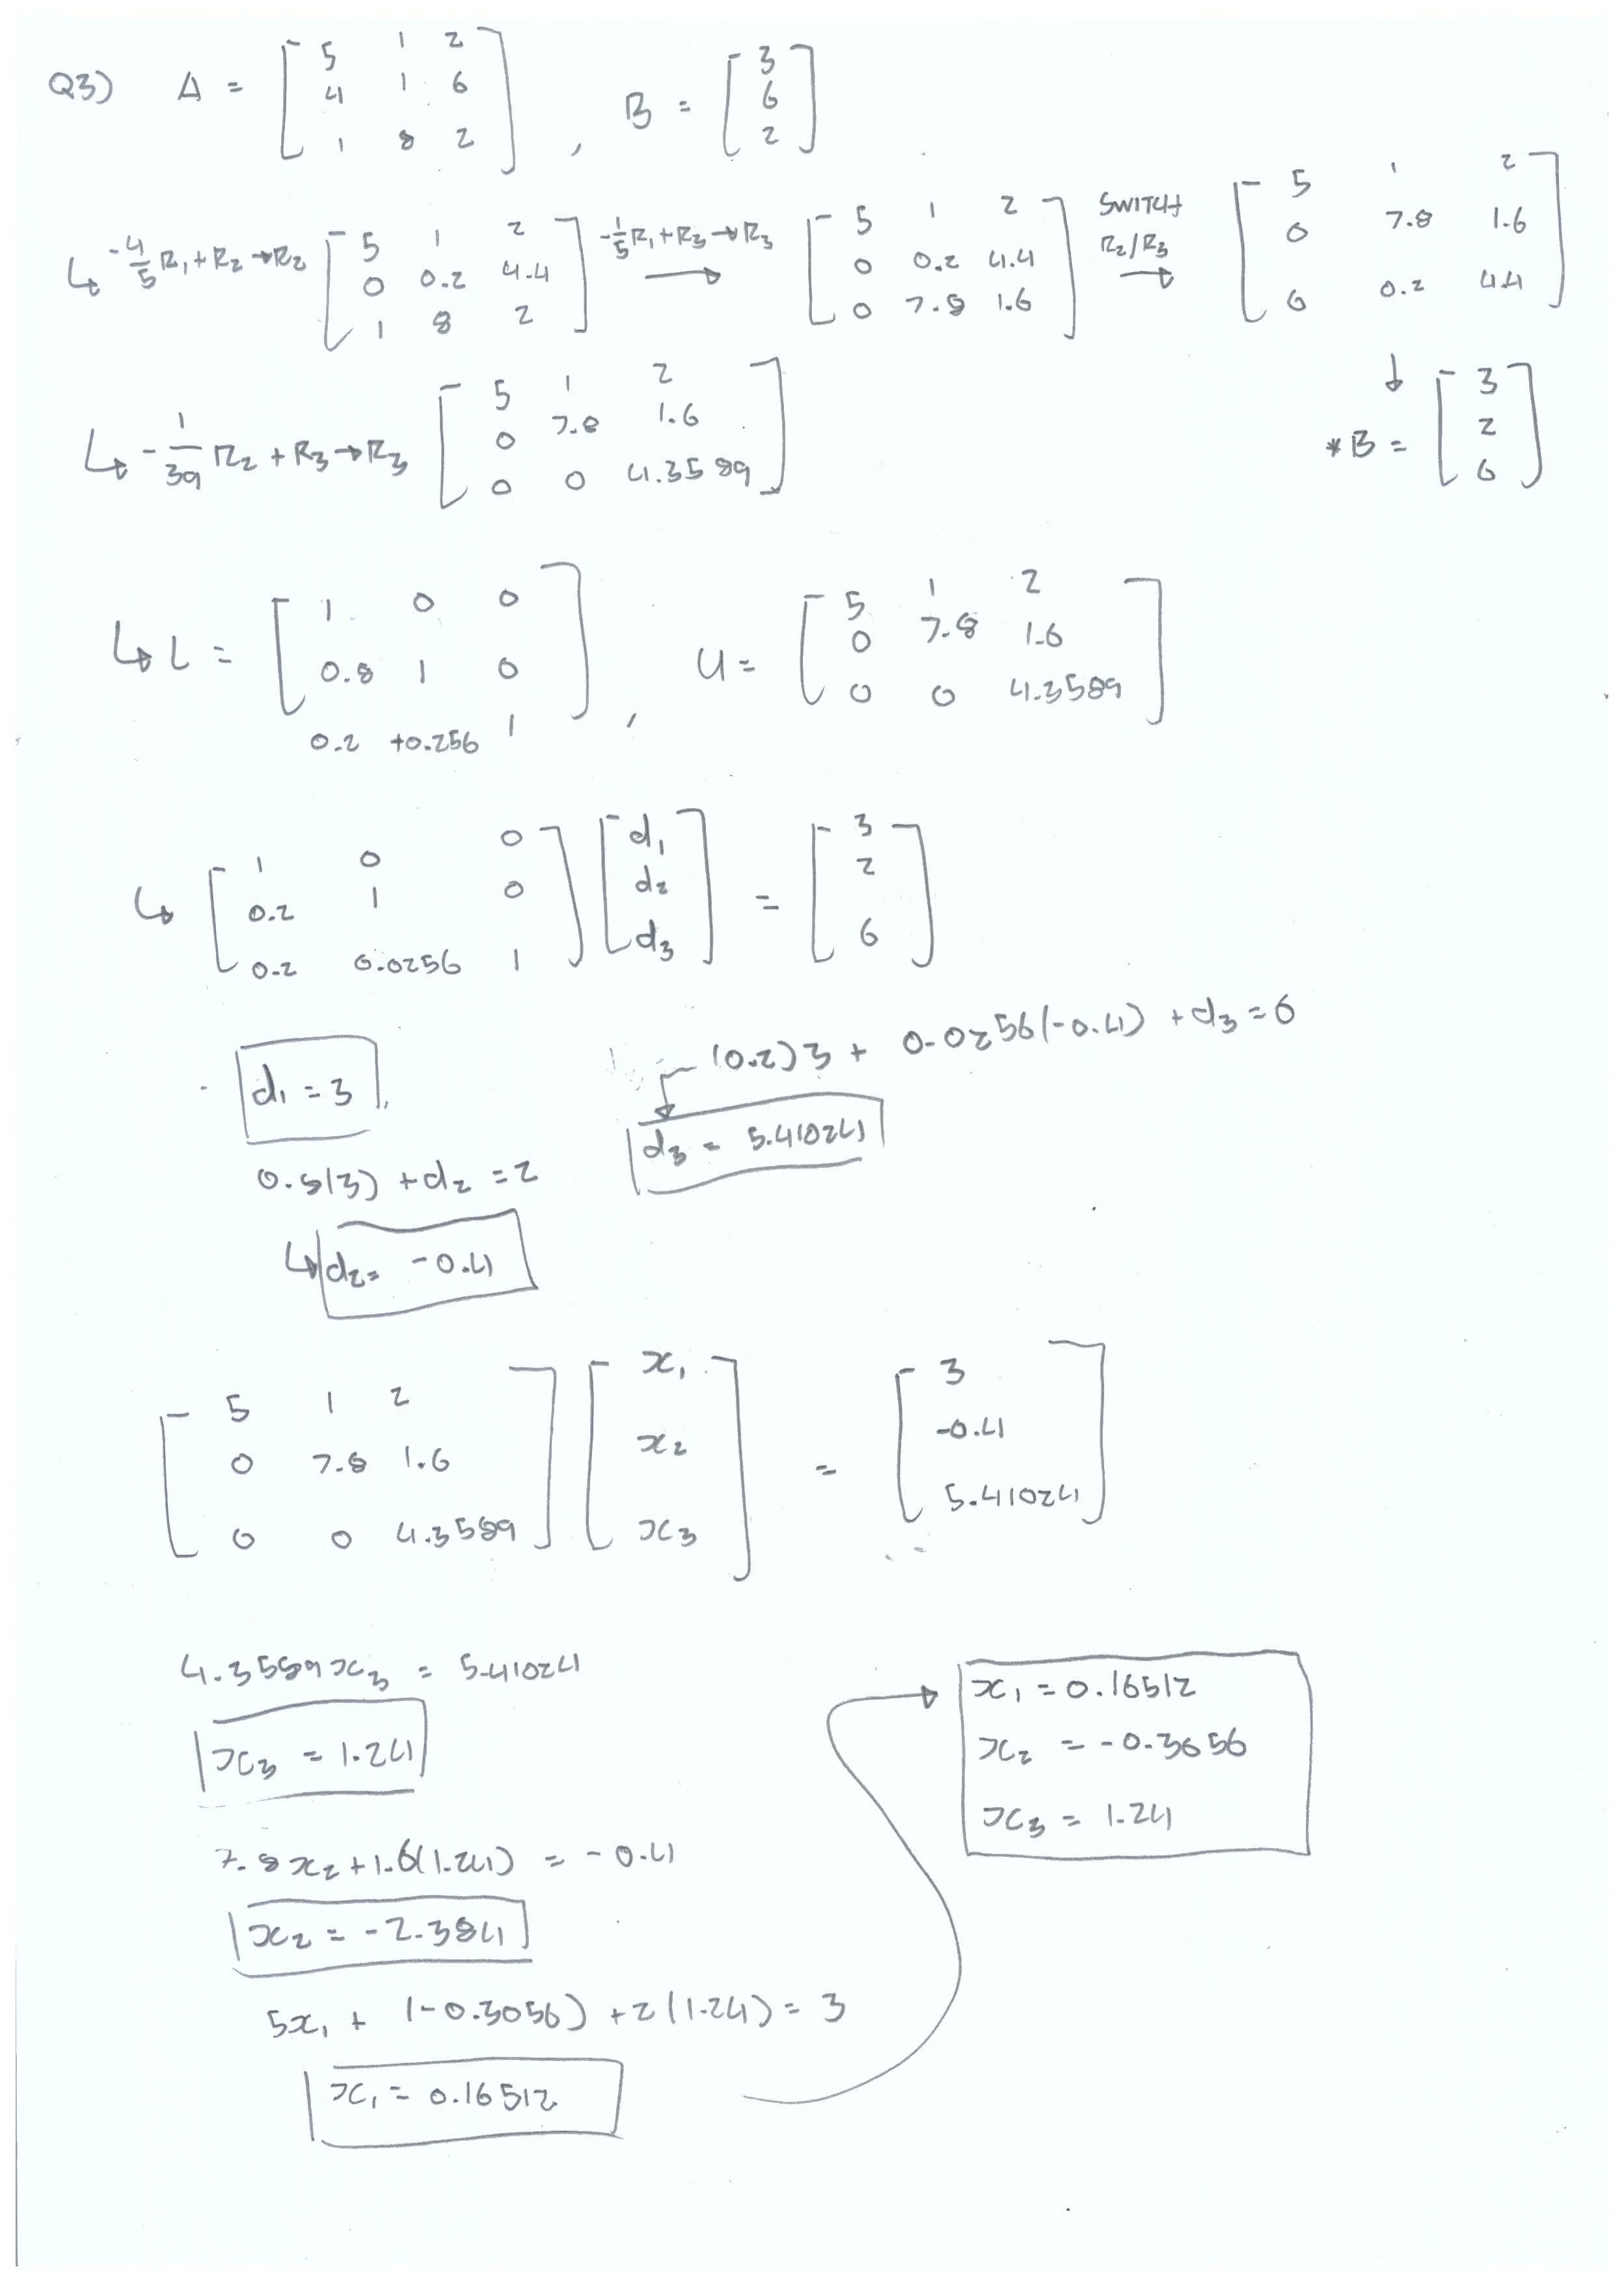 Q3) A = [5 1 2; 4 1 6; 1 8 2], B = [3; 6; 2]
↳ -4/5 R₁ + R₂ → R₂ [5 1 2; 0 0.2 4.4; 1 8 2] -1/5 R₁ + R₃ → R₃ ⟶ [5 1 2; 0 0.2 4.4; 0 7.8 1.6] SWITCH R₂/R₃ → [5 1 2; 0 7.8 1.6; 0 0.2 4.4]
↳ -1/39 R₂ + R₃ → R₃ [5 1 2; 0 7.8 1.6; 0 0 4.3589] ↓ *B = [3; 2; 6]
↳ L = [1 0 0; 0.8 1 0; 0.2 +0.256 1], U = [5 1 2; 0 7.8 1.6; 0 0 4.3589]
↳ [1 0 0; 0.2 1 0; 0.2 0.0256 1] [d₁; d₂; d₃] = [3; 2; 6]
d₁ = 3
(0.2)3 + 0.0256(-0.4) + d₃ = 6
d₃ = 5.41024
0.8(3) + d₂ = 2
↳ d₂ = -0.4
[5 1 2; 0 7.8 1.6; 0 0 4.3589] [x₁; x₂; x₃] = [3; -0.4; 5.41024]
4.3589x₃ = 5.41024
x₃ = 1.24
7.8x₂ + 1.6(1.24) = -0.4
x₂ = -2.384
5x₁ + (-0.3056) + 2(1.24) = 3
x₁ = 0.16512
x₁ = 0.16512
x₂ = -0.3056
x₃ = 1.24